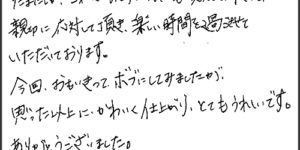 親切に応対して頂き、楽しい時間を過ごさせて
いただいております。
今回、おもいきって ボブにしてみましたが、
思った以上に、かわいく仕上がり、とてもうれしいです。
ありがとうございました。